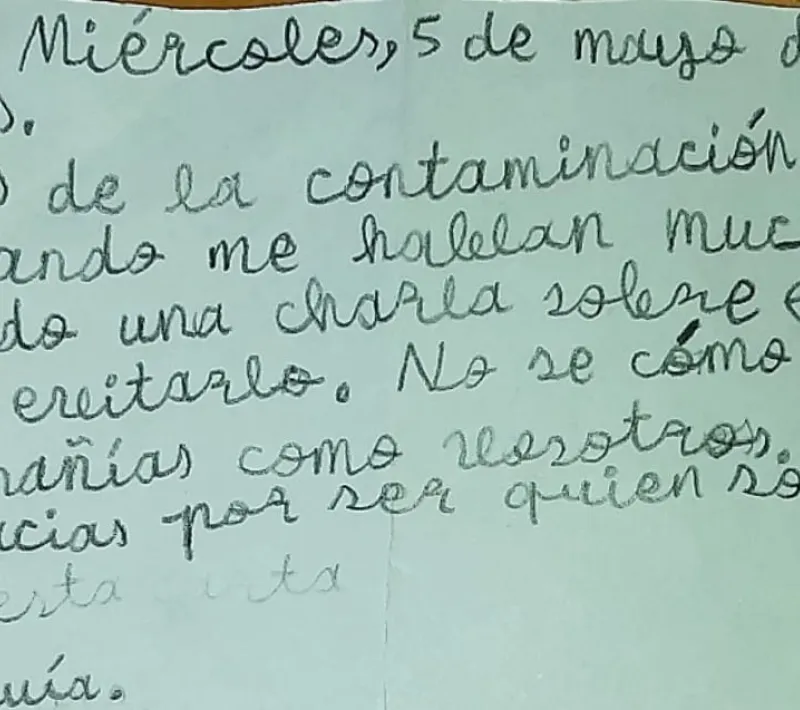 Miércoles, 5 de mayo d
s.
s de la contaminación
ando me hablan muc
do una charla sobre e
evitarlo. No se cómo
pañías como vosotros.
acias por ser quien so
esta carta
uía.